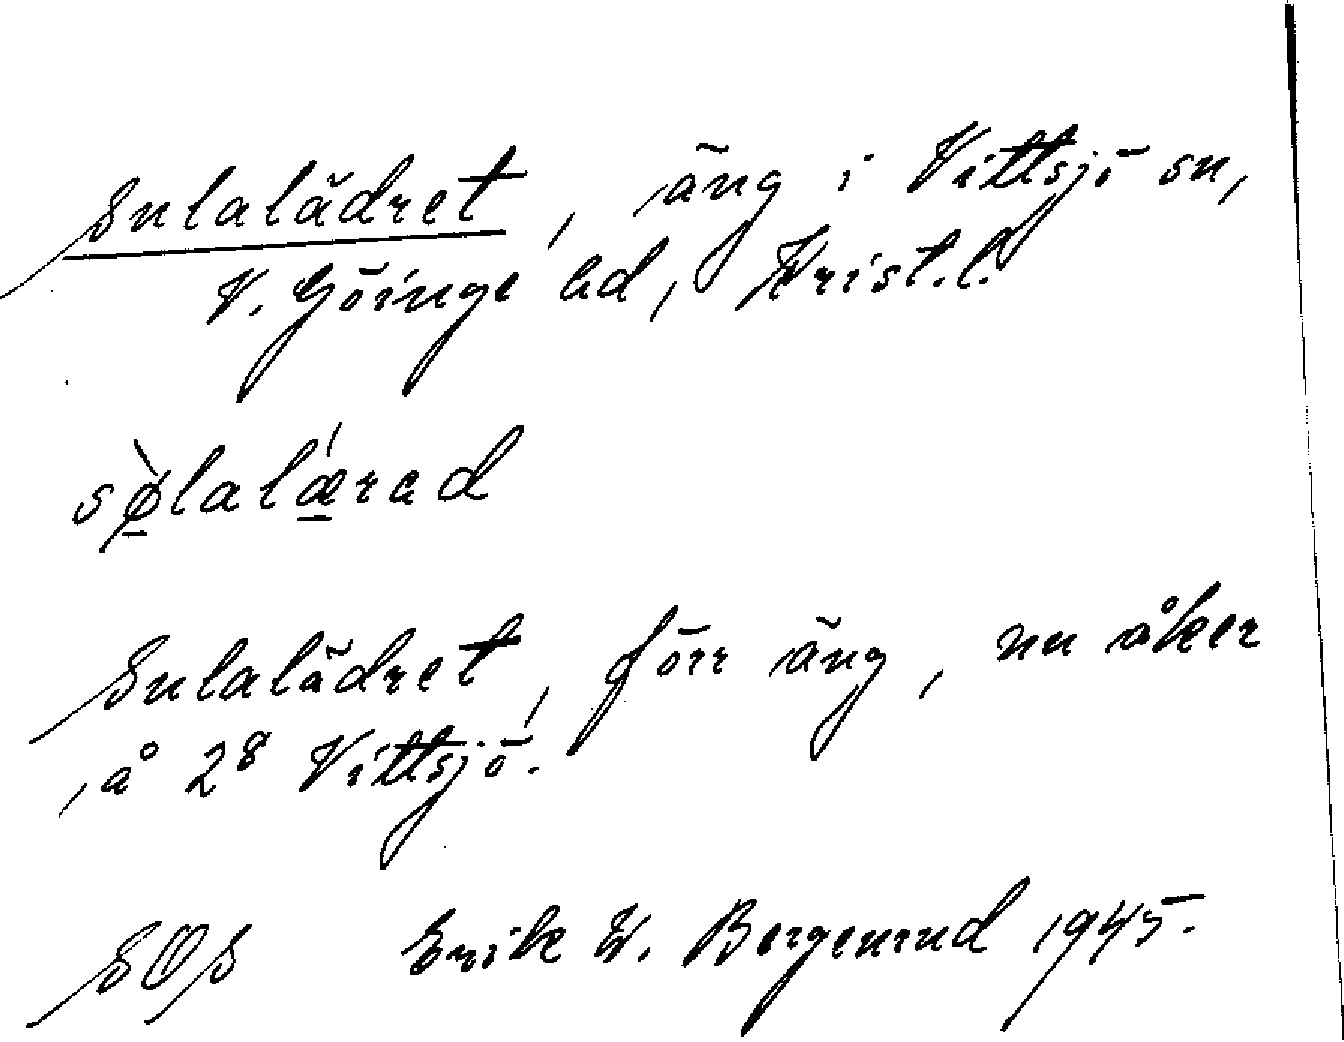 Sulalädret, äng i Vittsjö sn,
V. Göinge hd, Krist.l.
sø̀lalǽrad
Sulalädret, förr äng, nu åker
å 2⁸ Vittsjö.
SOS Erik W. Bergenrud 1945.